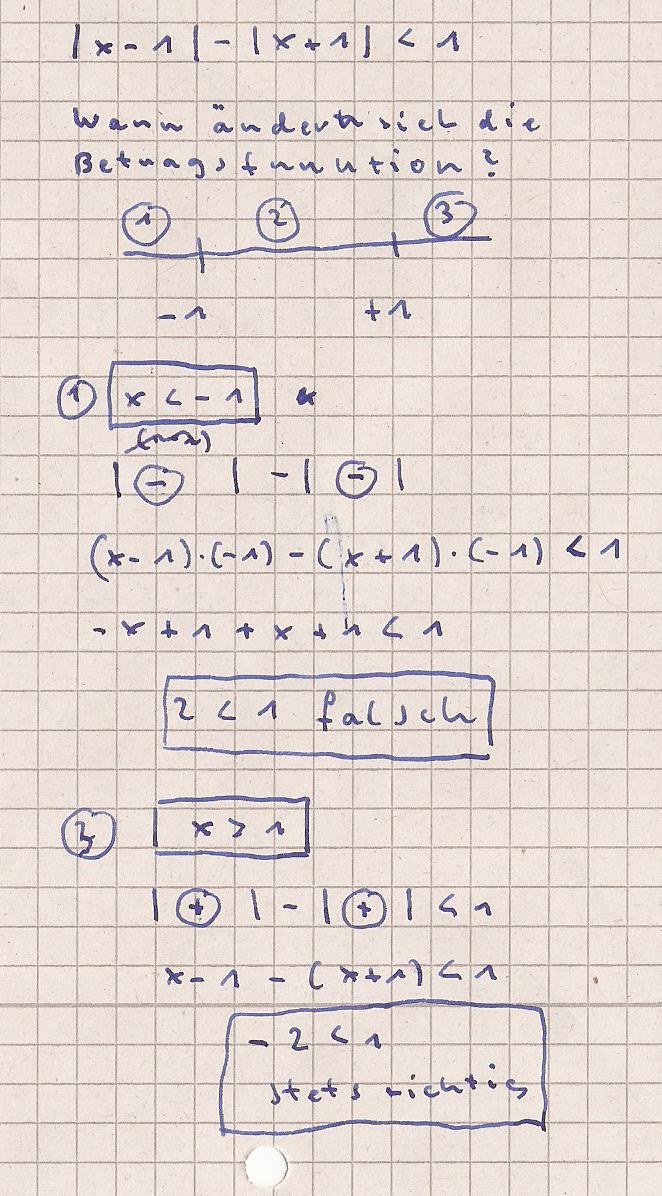 |x-1|-|x+1| < 1
Wann ändert sich die
Betragsfunktion?
① ② ③
-1 +1
① x < -1
|⊖ | -| ⊖ |
(x-1)·(-1) - (x+1)·(-1) < 1
-x+1+x+1 < 1
2 < 1 falsch
③ x > 1
|⊕ | - |⊕ | < 1
x-1 - (x+1) < 1
-2 < 1
stets richtig